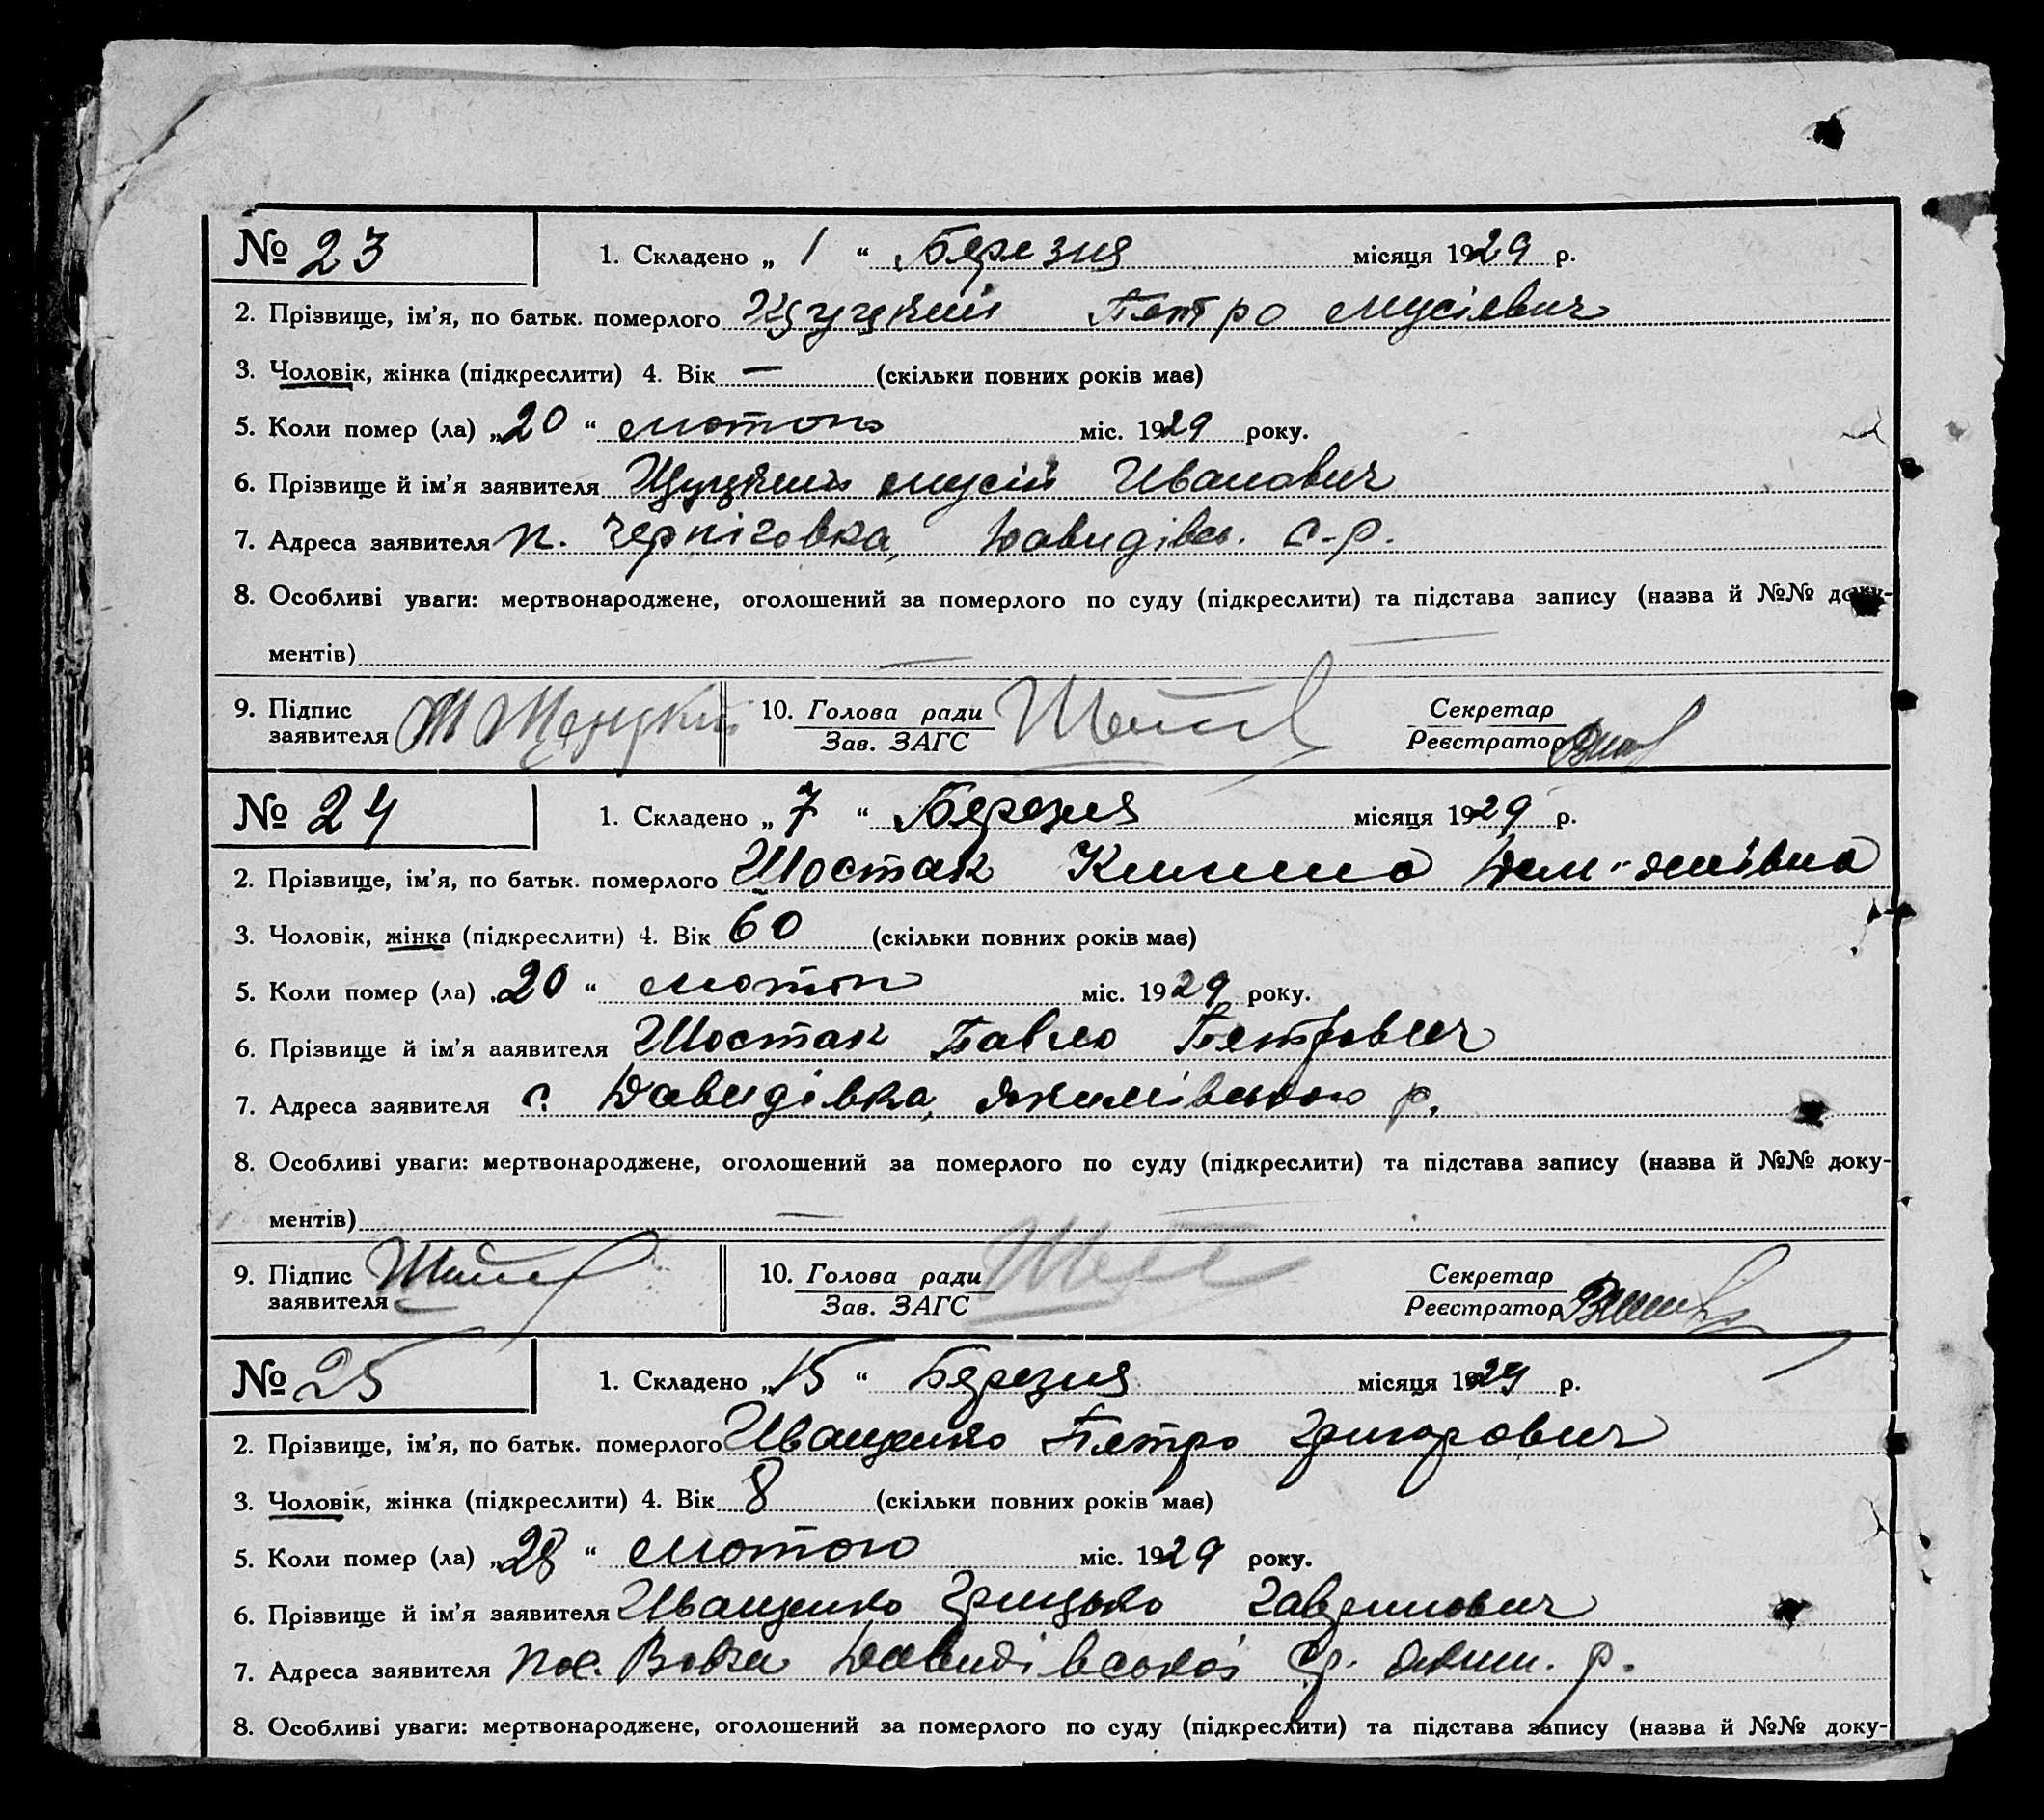 № 23 1. Складено „ 1 “ Березня місяця 1929 р.
2. Прізвище, ім'я, по батьк. померлого Щуцький Петро Мусієвич
3. Чоловік, жінка (підкреслити) 4. Вік — (скільки повних років має)
5. Коли помер (ла) „20 “ лютого міс. 1929 року.
6. Прізвище й ім'я заявителя Щуцький Мусій Иванович
7. Адреса заявителя п. Черніговка, Давидівсь. с-р.
8. Особливі уваги: мертвонароджене, оголошений за померлого по суду (підкреслити) та підстава запису (назва й №№ доку-
ментів)
9. Підпис 10. Голова ради Секретар
заявителя Зав. ЗАГС Реєстратор
№ 24 1. Складено „ 7 “ Березня місяця 1929 р.
2. Прізвище, ім'я, по батьк. померлого Шостак
3. Чоловік, жінка (підкреслити) 4. Вік 60 (скільки повних років має)
5. Коли помер (ла) „20 “ міс. 1929 року.
6. Прізвище й ім'я ааявителя Шостак Павло Петрович
7. Адреса заявителя с. Давидівка, Якимівського р.
8. Особливі уваги: мертвонароджене, оголошений за померлого по суду (підкреслити) та підстава запису (назва й №№ доку-
ментів)
9. Підпис 10. Голова ради Секретар
заявителя Зав. ЗАГС Реєстратор
№ 25 1. Складено „15 “ Березня місяця 1929 р.
2. Прізвище, ім'я, по батьк. померлого Иващенко Петро Григорович
3. Чоловік, жінка (підкреслити) 4. Вік 8 (скільки повних років має)
5. Коли помер (ла) „28 “ лютого міс. 1929 року.
6. Прізвище й ім'я заявителя Иващенко Грицько Гаврилович
7. Адреса заявителя пос. Вовча Давидівської с.р. Яким. р.
8. Особливі уваги: мертвонароджене, оголошений за померлого по суду (підкреслити) та підстава запису (назва й №№ доку-